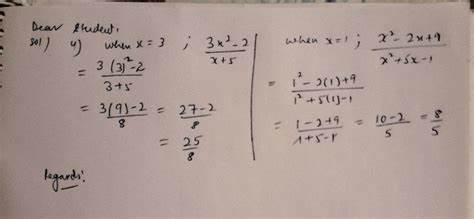 Dear Student,
sol) 4) when x = 3 ; (3x² - 2)/(x + 5)
= (3(3)² - 2)/(3 + 5)
= (3(9) - 2)/8 = (27 - 2)/8
= 25/8
when x = 1 ; (x² - 2x + 9)/(x² + 5x - 1)
= (1² - 2(1) + 9)/(1² + 5(1) - 1)
= (1 - 2 + 9)/(1 + 5 - 1) = (10 - 2)/5 = 8/5
Regards!